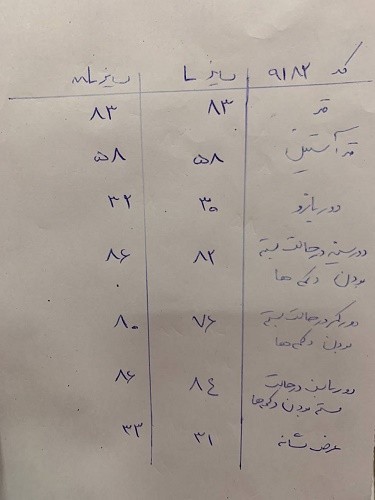 کد ۹۱۸۲ سایز L سایز mL
قد ۸۳ ۸۳
قد آستین ۵۸ ۵۸
دور بازو ۳۰ ۳۲
دور سینه در حالت بسته ۸۲ ۸۶
بودن دکمه ها
دور کمر در حالت بسته ۷۶ ۸۰
بودن دکمه ها
دور باسن در حالت ۸۴ ۸۶
بسته بودن دکمه ها
عرض شانه ۳۱ ۳۳